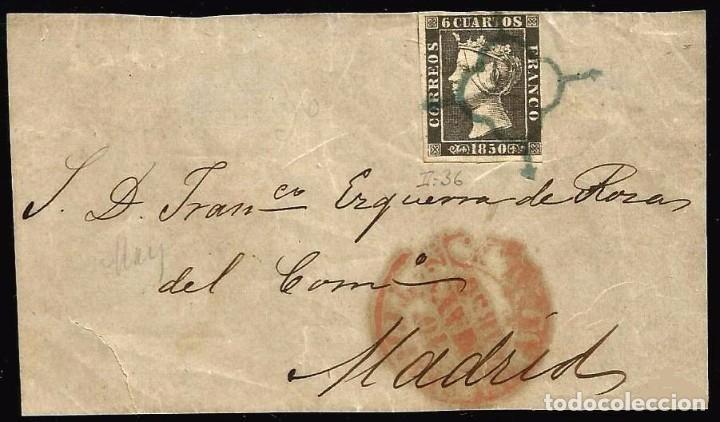 6 CUARTOS
CORREOS
FRANCO
1850
II:36
S. D. Fran.co Ezquerra de Rozas
May
del Com.o
Madrid
todocoleccion